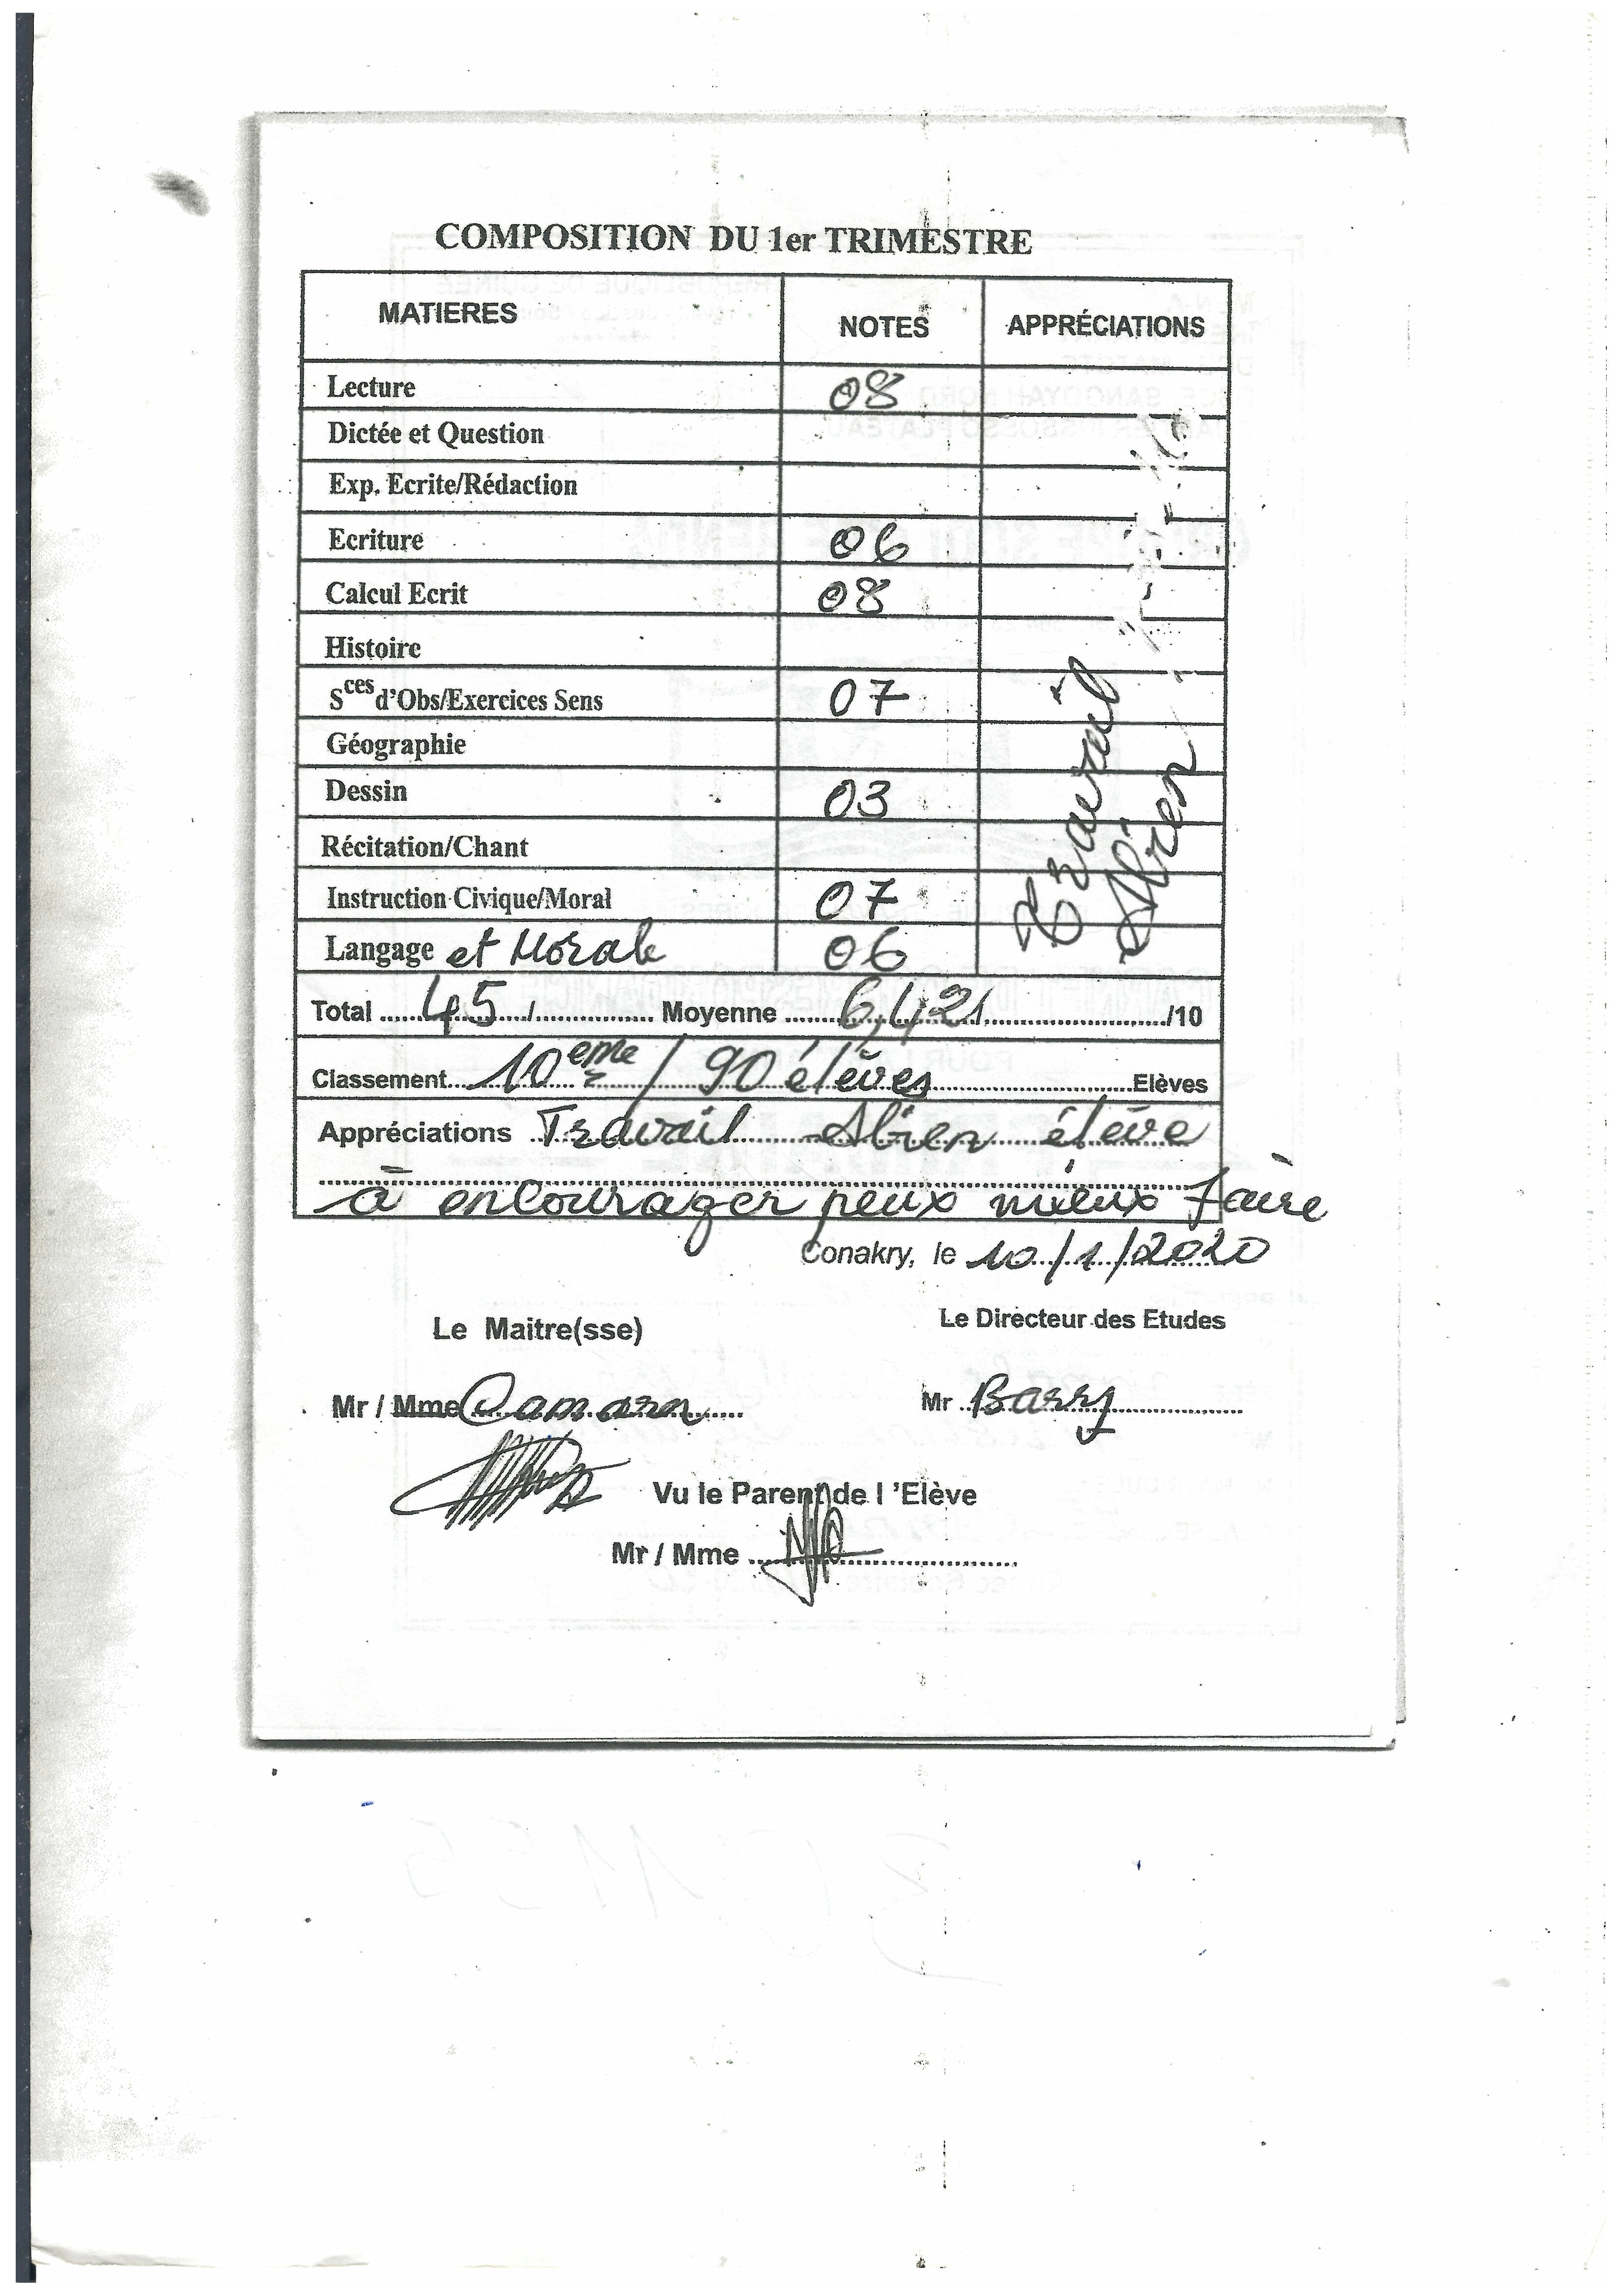 COMPOSITION DU 1er TRIMESTRE
MATIERES NOTES APPRÉCIATIONS
Lecture 08
Dictée et Question
Exp. Ecrite/Rédaction
Ecriture 06
Calcul Ecrit 08
Histoire
Sces d'Obs/Exercices Sens 07
Géographie
Dessin 03
Récitation/Chant
Instruction Civique/Moral 07
Langage et Morale 06
Travail
Abien
Total 45 / Moyenne 6,421 /10
Classement 10ème / 90 élèves Elèves
Appréciations Travail Abien élève
à encourager peux mieux faire
Conakry, le 10/1/2020
Le Maitre(sse) Le Directeur des Etudes
Mr / Mme Camara Mr Barry
Vu le Parent de l 'Elève
Mr / Mme